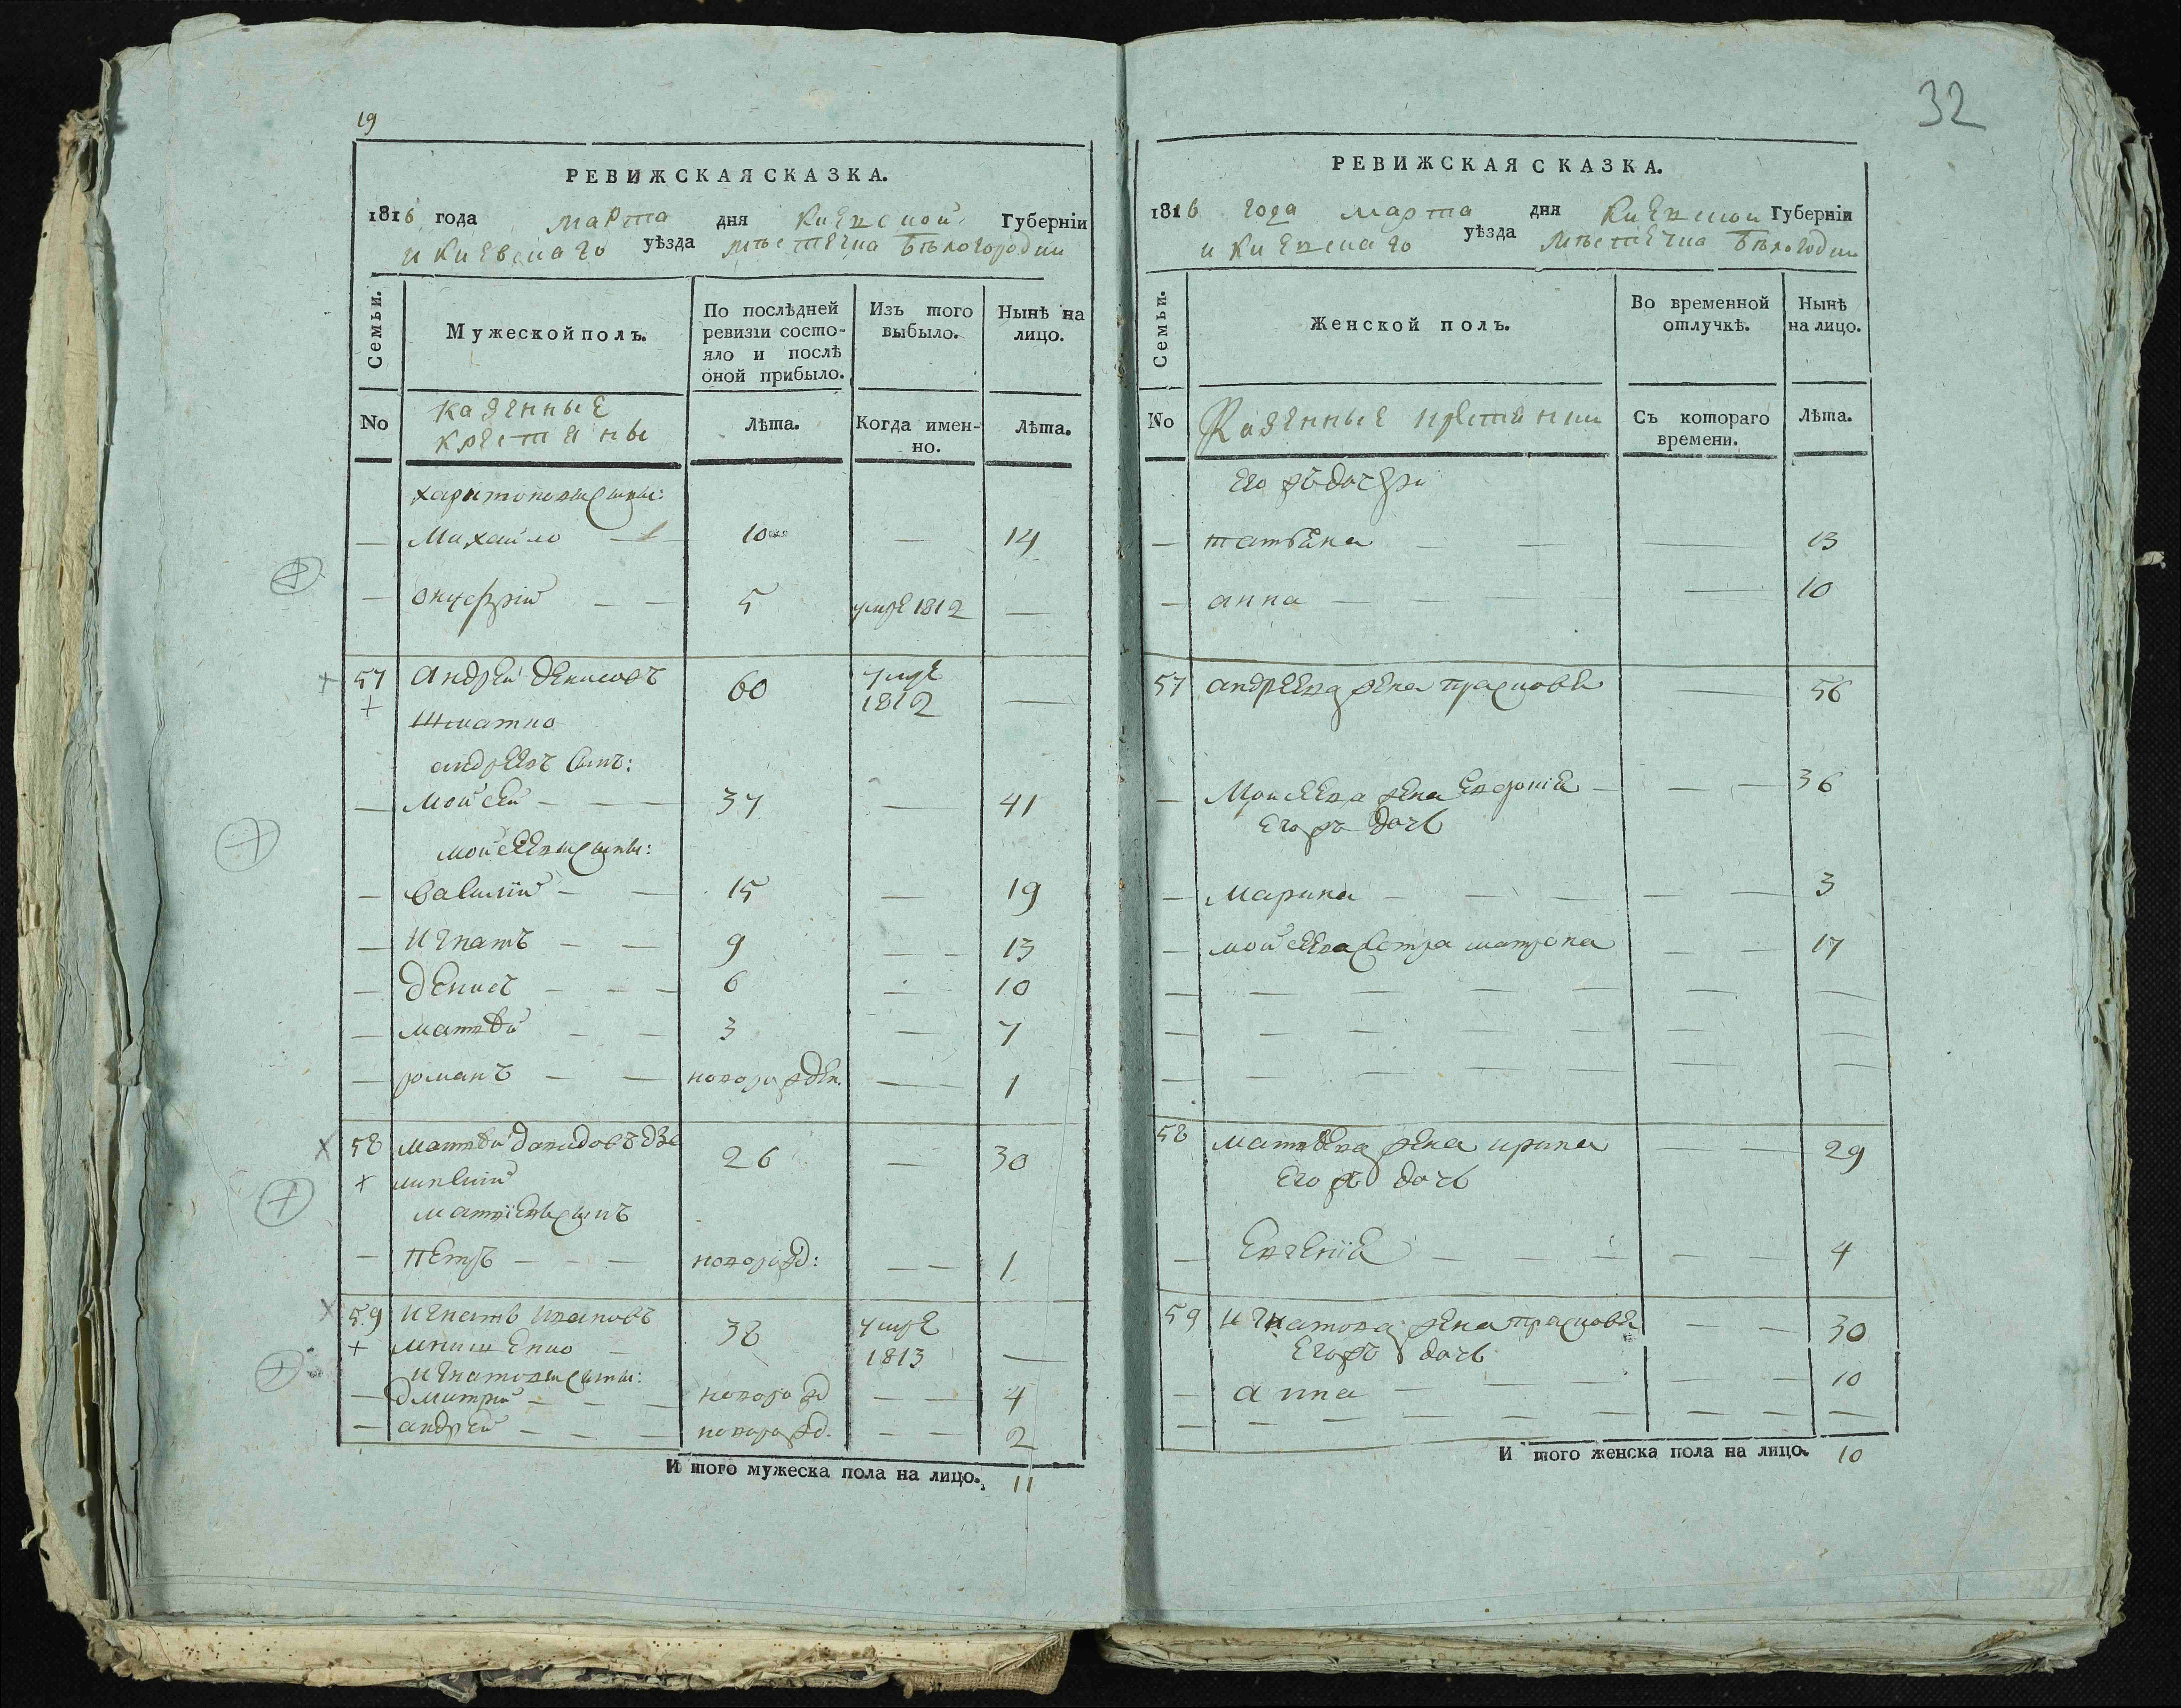 19
РЕВИЖСКАЯ СКАЗКА.
1816 года марта дня Киевской Губерніи
и Киевскаго уѣзда мѣстечка Бѣлогородки
Семьи.
Мужеской полъ.
По послѣдней ревизіи состо-
яло и послѣ оной прибыло.
Изъ того выбыло.
Нынѣ на лицо.
No
казенные
крестяны
Лѣта.
Когда имен-
но.
Лѣта.
Харитоновы сыны:
— Михайло — 10 — 14
— Онуфрій — — 5 умре 1812 —
57 Андрей Денисовъ 60 умре 1812 —
Шматко
Андреевъ сынъ:
— Мойсей — — — 37 — 41
Мойсеевы сыны:
— Василій — — 15 — 19
— Игнатъ — — 9 — — 13
— Денисъ — — — 6 — 10
— Матвѣй — — 3 — 7
— Романъ — — новорожден. — — 1
58 Матвѣй Давидовъ 26 — 30
Матвіевъ сынъ
— Петръ — — — новорожд: — — 1
59 Игнатъ Ивановъ 38 умре 1813 —
Игнатовы сыны:
— Дмитрий — — — новорожд — — 4
— Андрей — — — новорожд. — — 2
И того мужеска пола на лицо. 11
32
РЕВИЖСКАЯ СКАЗКА.
1816 года марта дня Киевской Губерніи
и Киевскаго уѣзда мѣстечка Бѣлогодки
Семьи.
Женской полъ.
Во временной отлучкѣ.
Нынѣ на лицо.
No
Казенные крестянки
Съ котораго времени.
Лѣта.
Его жъ дочери
— Татьяна — — — 13
— Анна — — — — 10
57 Андреева жена Прасковя — 56
— Мойсеева жена Евдокія — — — 36
Его жъ дочь
— Марина — — — — — — 3
— Мойсеева сестра Матрона — — 17
58 Матвѣева жена Ирина — — 29
Его жъ дочь
— Евгенія — — — — — 4
59 Игнатова жена Прасковя — — 30
Его жъ дочь
— Анна — — — — — 10
И того женска пола на лицо. 10